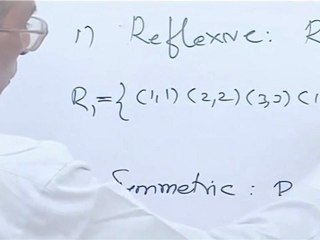 1) Reflexive: R
R₁={ (1,1) (2,2) (3,3) (1
Symmetric: R